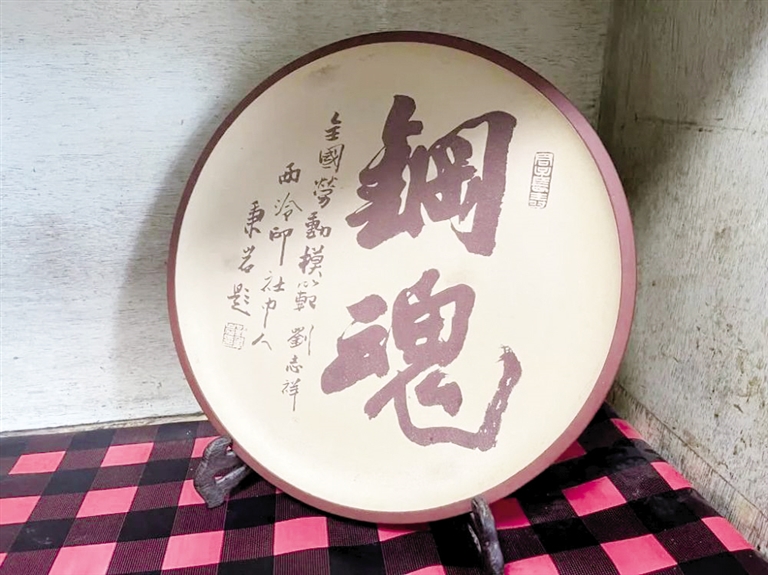 鋼魂
全國勞動模範 劉志祥
西泠印社中人
秉岩題